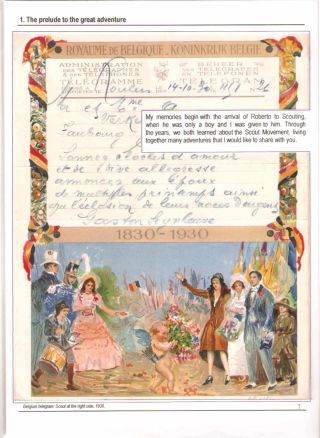 1. The prelude to the great adventure
ROYAUME DE BELGIQUE. KONINKRIJK BELGIË
ADMINISTRATION
DES TÉLÉGRAPHES
& DES TÉLÉPHONES
TÉLÉGRAMME
BEHEER
VAN TELEGRAFEN
EN TELEFONEN
TELEGRAM
14-10-30
Mme
Faubourg
My memories begin with the arrival of Roberto to Scouting,
when he was only a boy and I was given to him. Through
the years, we both learned about the Scout Movement, living
together many adventures that I would like to share with you.
Sonnez cloches d'amour
et de vive allégresse
annoncez aux époux
de multiples printemps ainsi
que l'éclosion de leurs noces d'argent
Gaston
1830-1930
Belgium telegram: Scout at the right side, 1930.
1